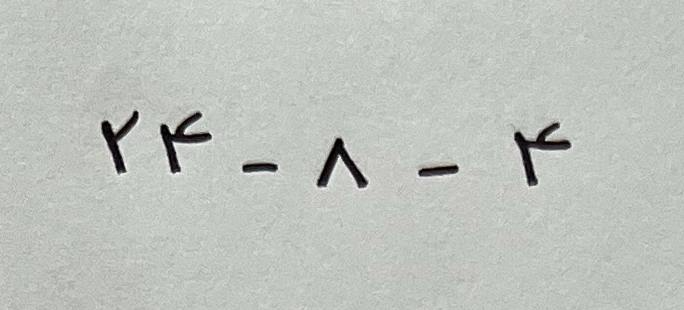 ۲۴ - ۸ - ۴